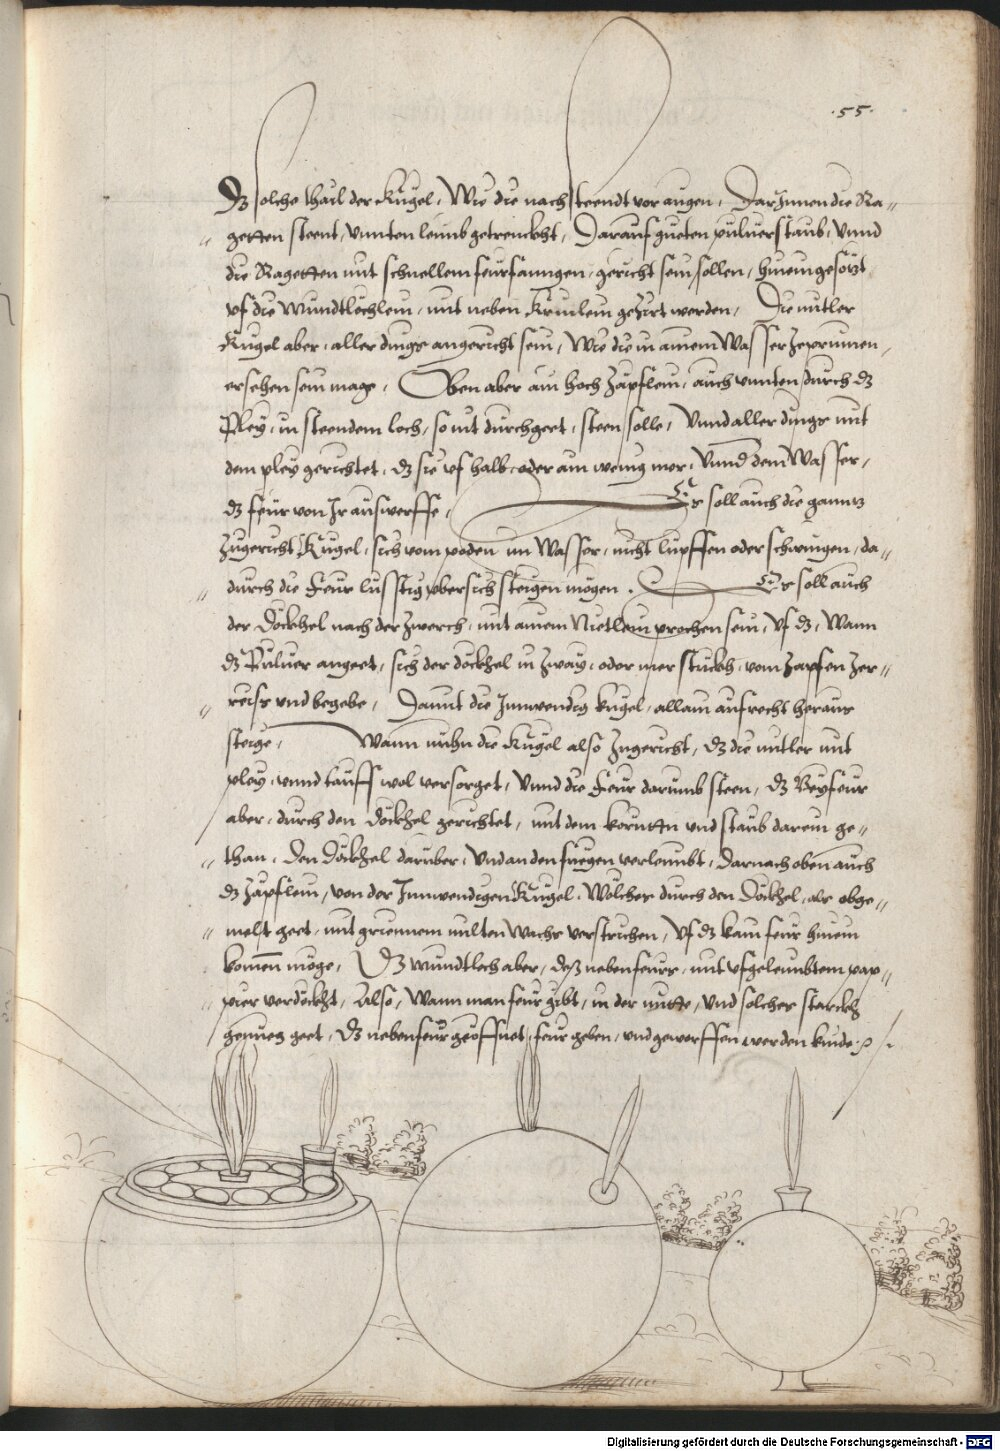 .55.
Dz solche thail der Kugel, Wie die nach steendt vor augen, Darinnen die Ra=
getten steent, Vnnten leimb getrenckht, Darauf gueten puluerstaub, Vnnd
die Ragetten mit schnellem feurfanngen, gericht sein sollen, hinein gesötzt
vf die Mundtlöchlein, mit neben Kruilein geZirt werden, Die mitler
Kugel aber, aller dings angericht sein, Wie die in ainem Wasser Zeprinnen,
ersehen sein mage, Oben aber ain hoch Zäpflein, auch vnnten durch dz
Pley, in steendem loch, so nit durchgeet, steen solle, Vnnd aller dings mit
dem pley gerichtet, dz sie vf halb, oder ain wenig mer, Vnnd dem Wasser,
dz feur von Ir auswerffe,
Es soll auch die ganntz
Zugericht Kugel, sich vom poden im Wasser, nicht lupffen oder schwingen, da=
durch die Feur lusstig vbersich steigen mögen. Es soll auch
der Döckhel nach der Zwerch, mit ainem Nietlein prochen sein, Vf dz, Wann
dz Puluer angeet, sich der döckhel in Zway, oder mer stuckh, vom Zapfen Zer=
reiss vnd begebe, Damit die Innwendig kugel, allain aufrecht heraus
steige, Wann nuhn die Kugel also Zugericht, dz die mitler mit
pley, vnnd tauff wol versorget, Vnnd die Feur darumb steen, dz Beyfeur
aber, durch den Döckhel gerichtet, mit dem kornttn vnd staub darein ge=
than, Den Döckhel darüber, Vnd an den fuegen verleimbt, Darnach oben auch
dz Zäpflein, von der Innwendigen Kugel, Wölcher durch den Döckhel, als obge=
melt geet, mit griennem milten Wachs verstrichen, Vf dz kain feur hinein
komen möge, Dz Mundtloch aber, dess nebenfeurs, mit vfgeleimbtem pap=
pier verdeckht, Also, Wann man feur gibt, in der mitte, Vnd solches starckh
genueg geet, Dz nebenfeur geöffnet, feur geben, vnd geworffen werden kinde.
Digitalisierung gefördert durch die Deutsche Forschungsgemeinschaft - DFG